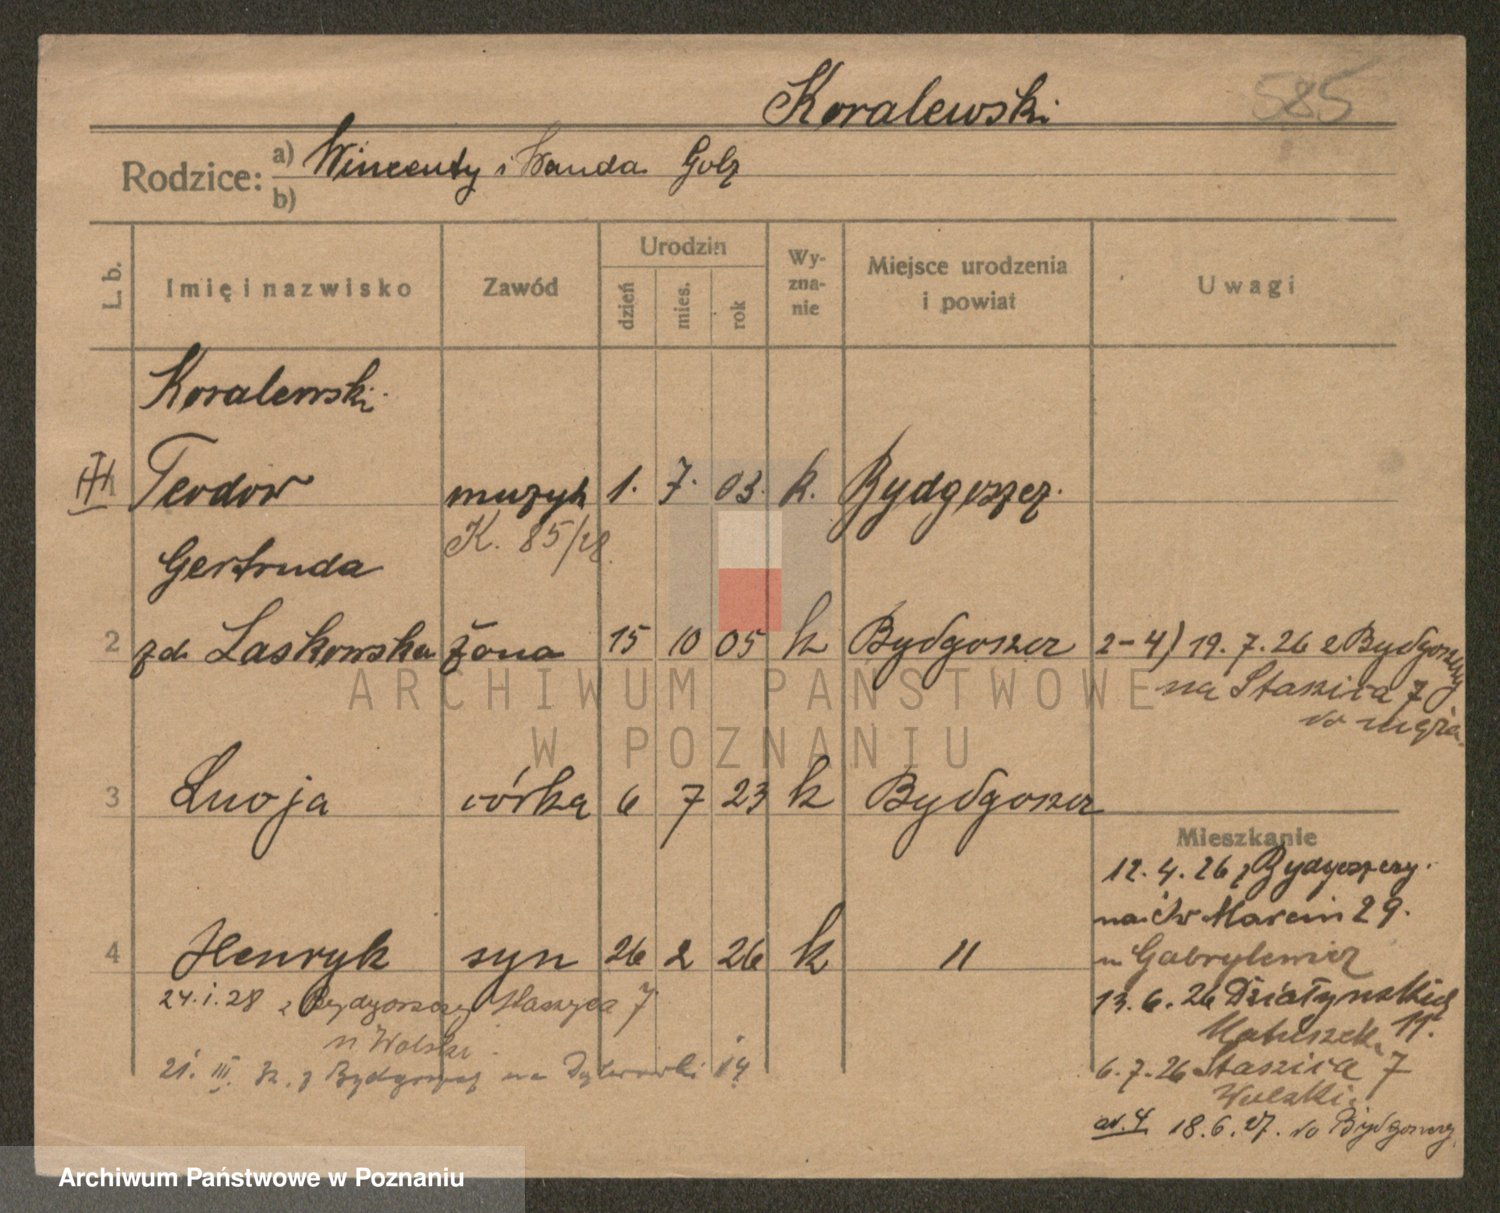 585
Koralewski
Rodzice: a) Wincenty i Wanda Golz
b)
L. b.
Imię i nazwisko
Zawód
Urodzin
dzień
mies.
rok
Wy-
zna-
nie
Miejsce urodzenia
i powiat
Uwagi
Koralewski
1 Teodor muzyk 1. 7. 03. k. Bydgoszcz.
K. 85/28.
Gertruda
2 zd. Laskowska żona 15 10 05 k Bydgoszcz 2-4) 19. 7. 26 z Bydgoszczy
na Staszica 7
do męża
3 Lucja córka 6 7 23 k Bydgoszcz
Mieszkanie
12. 4. 26 z Bydgoszczy.
na Św Marcin 29.
4 Henryk syn 26 2 26 k 11
u Gabrylewicz
24. I. 28 z Bydgoszczy Staszyca 7
u Wolski
21. III. 32. z Bydgoszcz na 14
13. 6. 26 Działyńskich
Matuszek 11.
6. 7. 26 Staszica 7
Wolski
18. 6. 27. do Bydgoszczy
ARCHIWUM PAŃSTWOWE
W POZNANIU
Archiwum Państwowe w Poznaniu